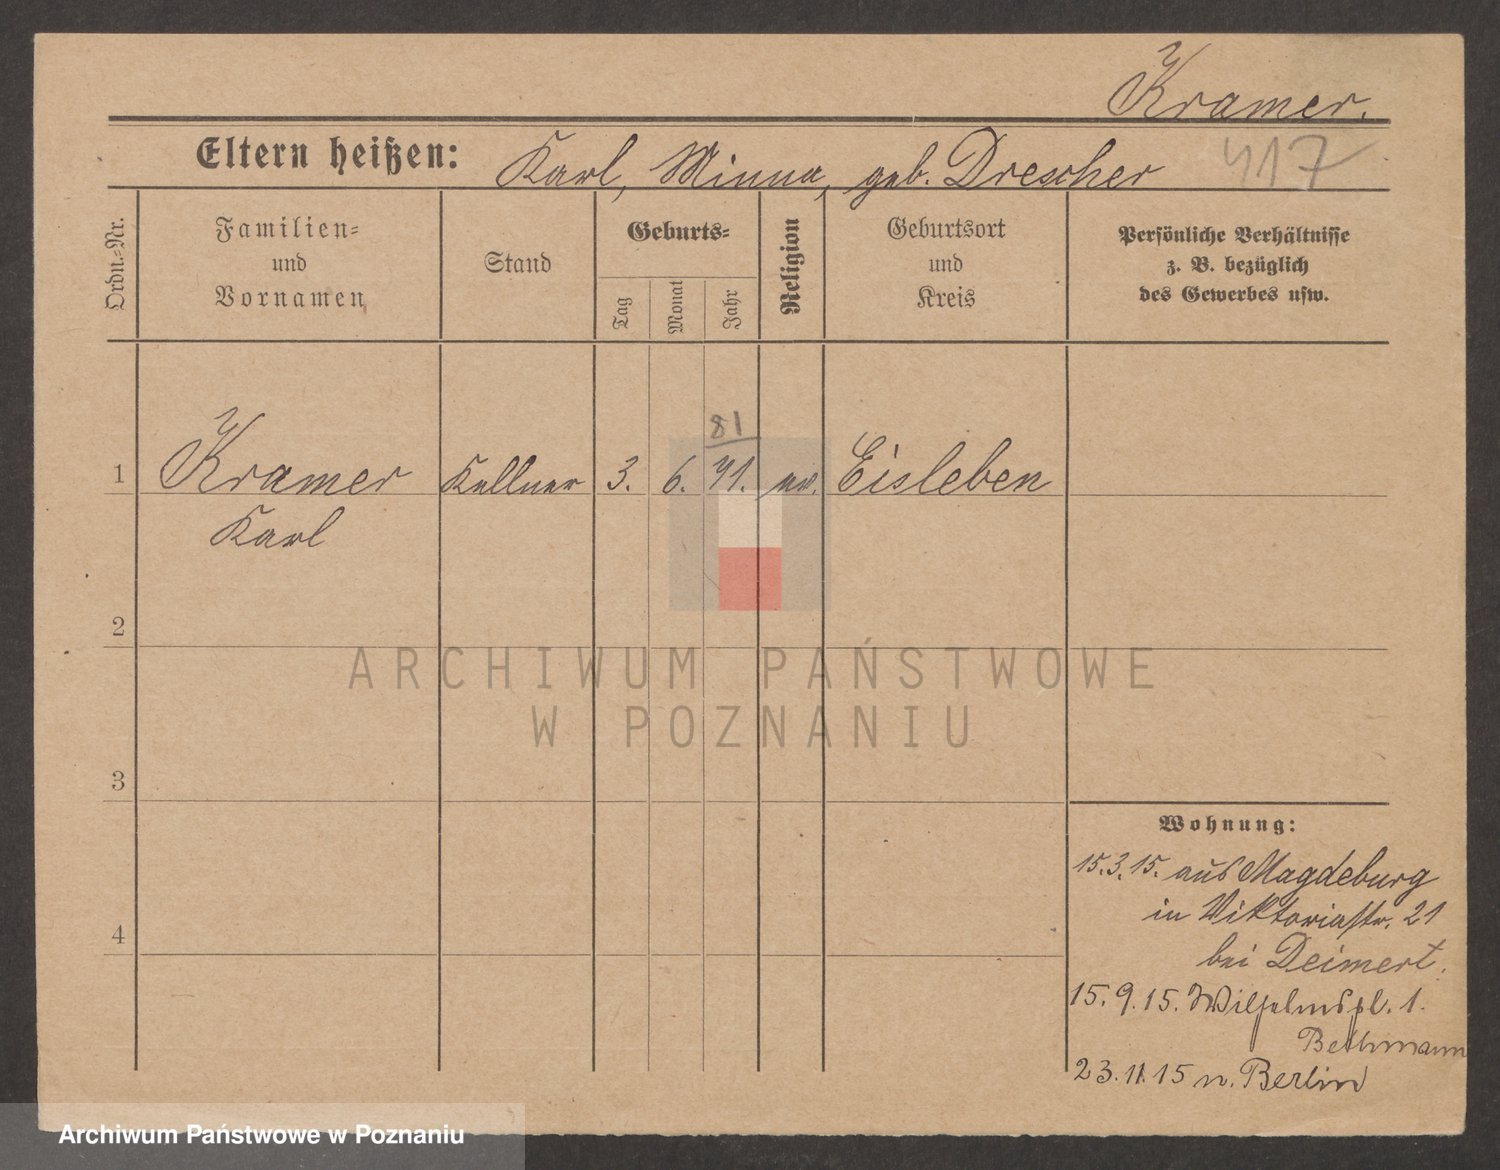 Kramer.
Eltern heißen: Karl, Minna, geb. Drescher 417
Ordn.-Nr.
Familien-
und
Vornamen
Stand
Geburts-
Tag
Monat
Jahr
Religion
Geburtsort
und
Kreis
Persönliche Verhältnisse
z. B. bezüglich
des Gewerbes usw.
81
1 Kramer Kellner 3. 6. 71. ev. Eisleben
Karl
2
ARCHIWUM PAŃSTWOWE
W POZNANIU
3
4
Wohnung:
15.3.15. aus Magdeburg
in Viktoriastr. 21
bei Deimert.
15.9.15. Wilhelmspl. 1.
Bethmann
23.11.15 n. Berlin
Archiwum Państwowe w Poznaniu